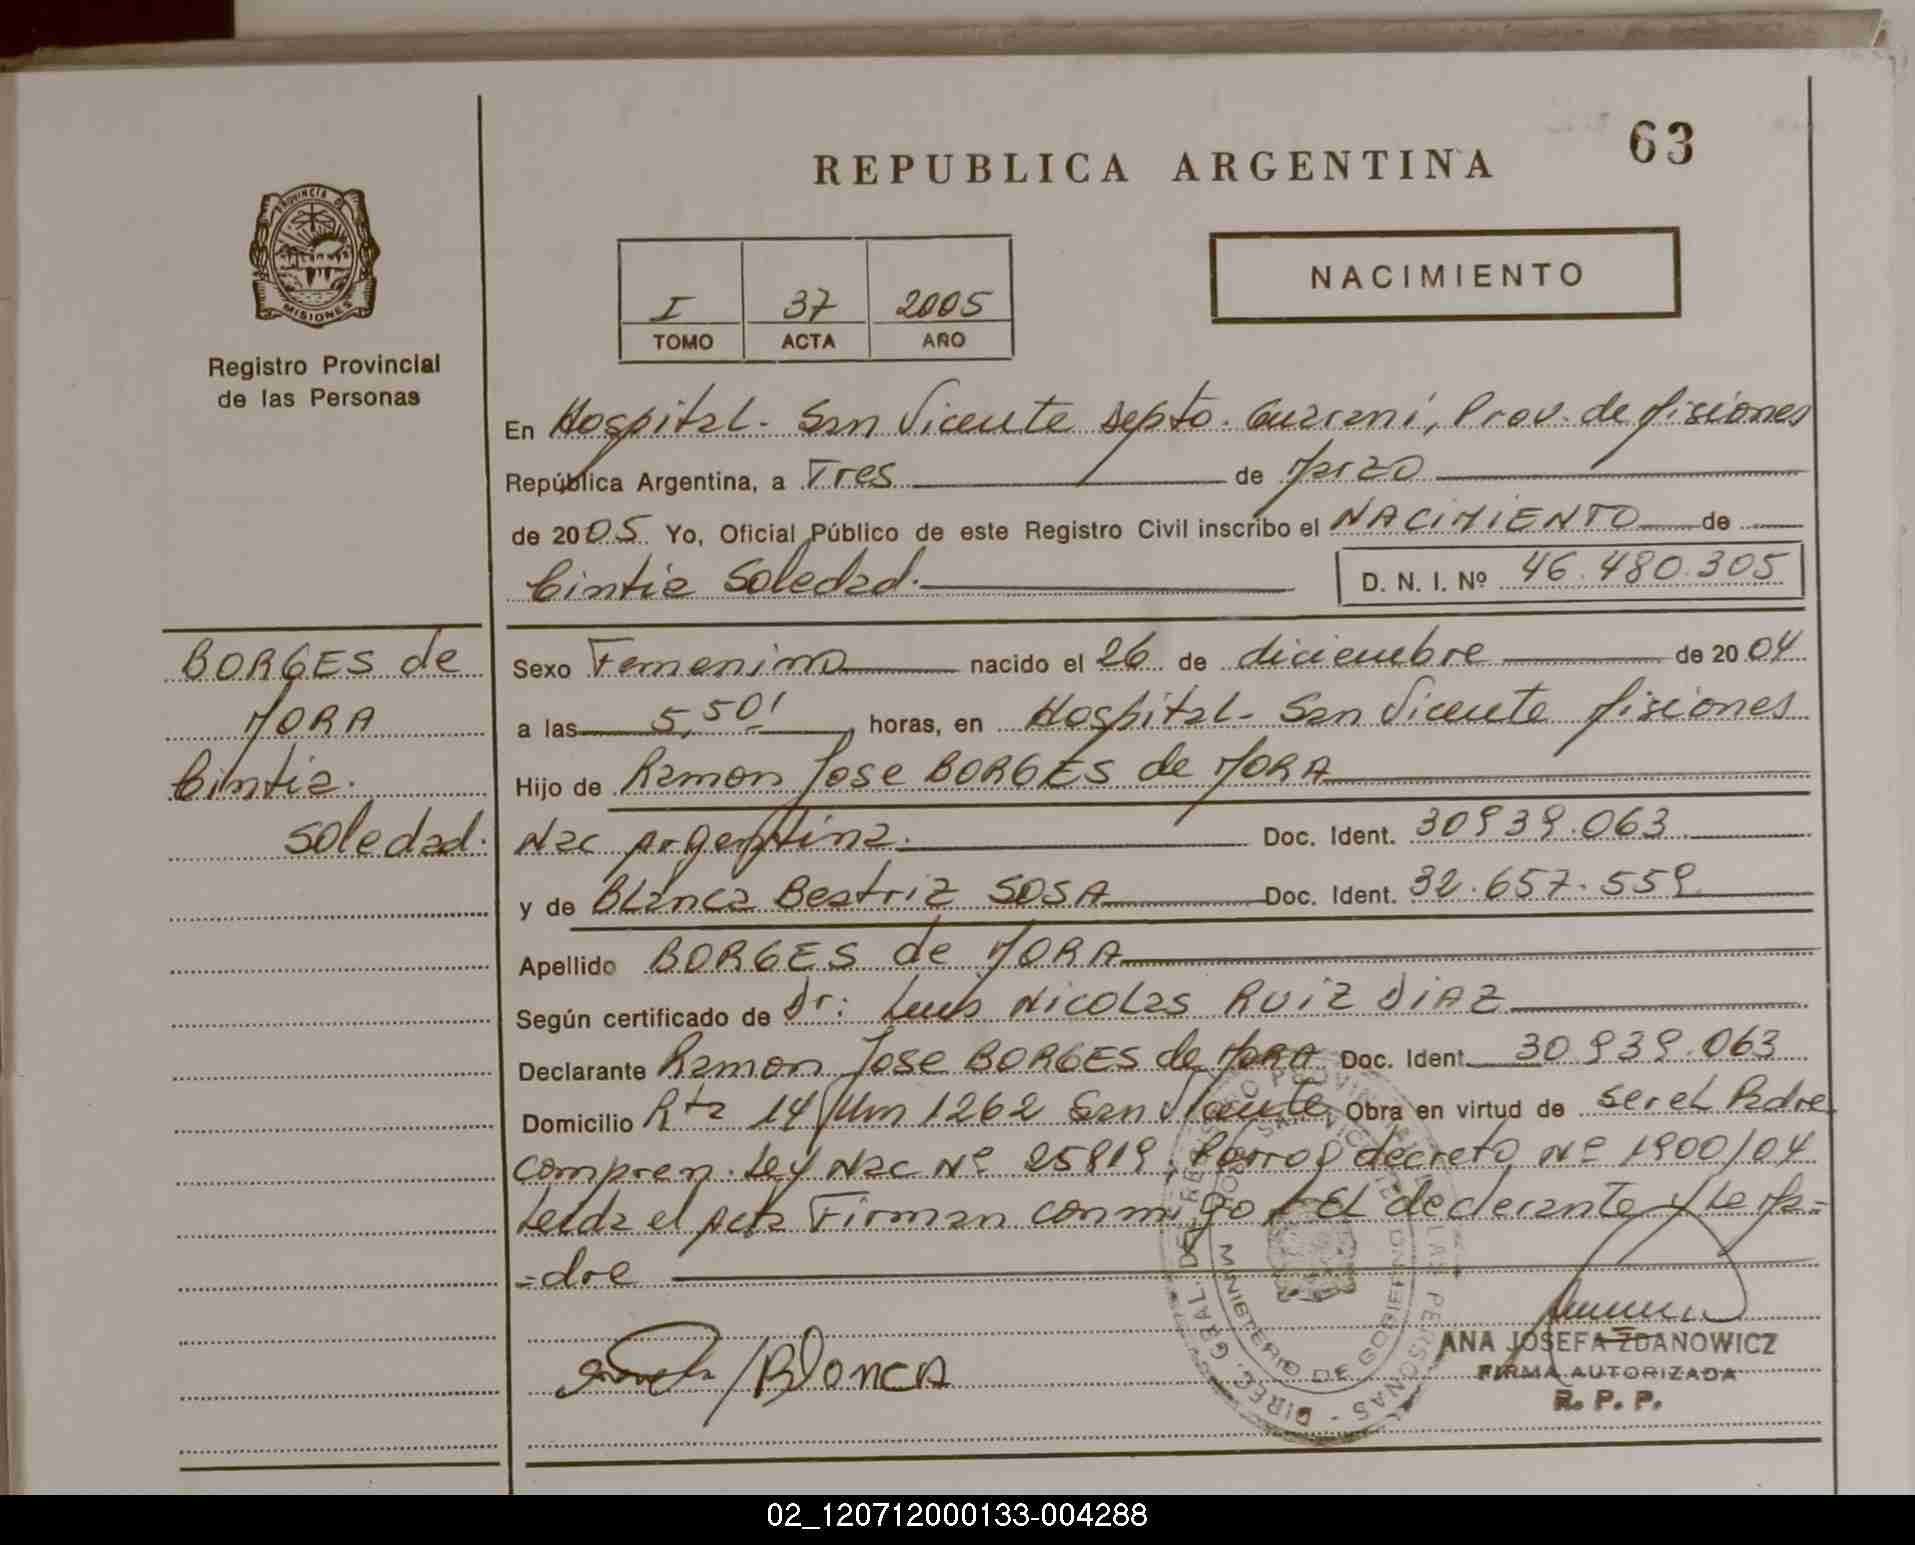 63
REPUBLICA ARGENTINA
PROVINCIA D
MISIONES
Registro Provincial
de las Personas
I 37 2005
TOMO ACTA AÑO
NACIMIENTO
En Hospital - San Vicente Depto. Guarani, Prov. de Misiones
República Argentina, a Tres de Marzo
de 2005 Yo, Oficial Público de este Registro Civil inscribo el NACIMIENTO de
Cintia Soledad. D. N. I. Nº 46.480.305
BORGES de
MORA
Cintia.
Soledad.
Sexo Femenino nacido el 26 de diciembre de 2004
a las 5,50' horas, en Hospital - San Vicente Misiones
Hijo de Ramon Jose BORGES de MORA
Nac Argentina. Doc. Ident. 30939.063
y de Blanca Beatriz SOSA Doc. Ident. 32.657.559
Apellido BORGES de MORA
Según certificado de Dr: Luis Nicolas RUIZ DIAZ
Declarante Ramon Jose BORGES de MORA Doc. Ident. 30939.063
Domicilio Rta 14 Km 1262 San Vicente Obra en virtud de ser el Padre
Compren. Ley Nac Nº 25819, decreto Nº 1900/04
Leida el Acta Firman conmigo El declarante y la Ma=
=dre
Blanca
ANA JOSEFA ZDANOWICZ
FIRMA AUTORIZADA
R. P. P.
MINISTERIO DE GOBIERNO
02_120712000133-004288